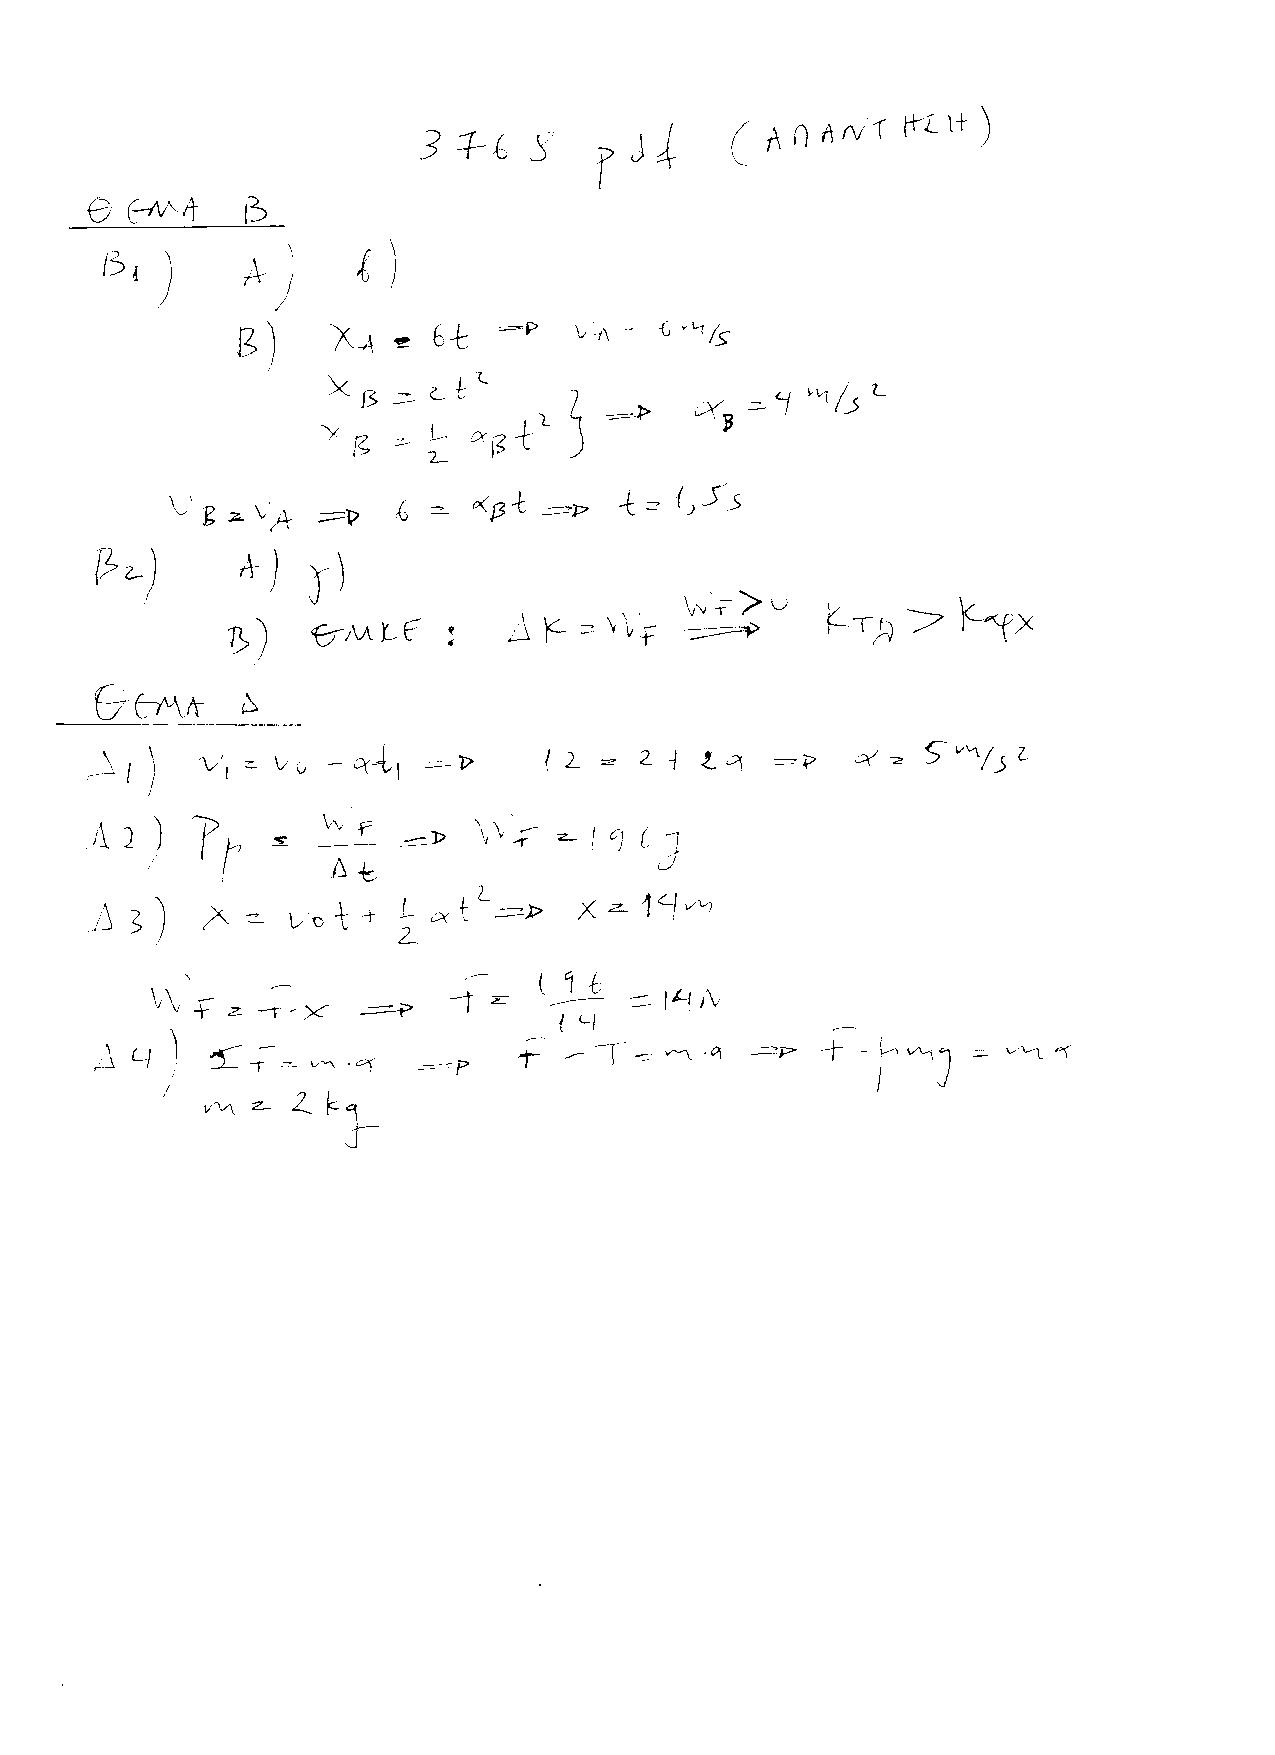 3765 pdf (ΑΠΑΝΤΗΣΗ)
ΘΕΜΑ Β
Β1) Α) β)
Β) xA = 6t => vA = 6 m/s
xB = 2t²
xB = 1/2 αBt² } => αB = 4 m/s²
vB = vA => 6 = αBt => t = 1,5s
Β2) Α) γ)
Β) ΘΜΚΕ : ΔK = WF WF>0 => Kτελ > Kαρχ
ΘΕΜΑ Δ
Δ1) v1 = v0 - αt1 => 12 = 2 + 2α => α = 5 m/s²
Δ2) Pμ = WF/Δt => WF = 196J
Δ3) x = v0t + 1/2 αt² => x = 14m
WF = F·x => F = 196/14 = 14N
Δ4) ΣF = m·α => F - T = m·α => F - μmg = mα
m = 2 kg